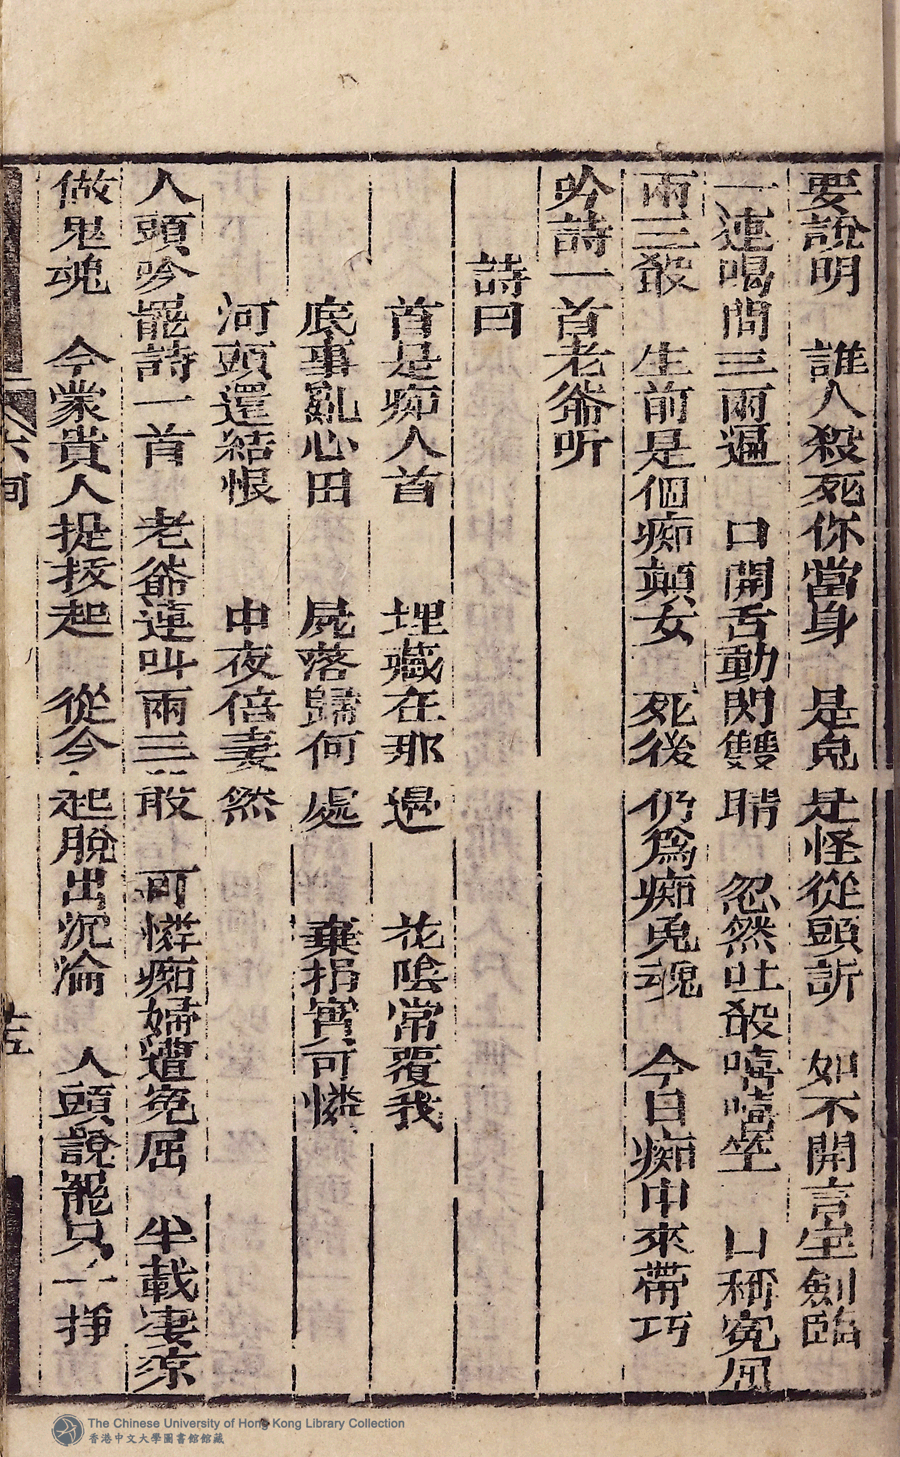 要說明　誰人殺死你當身　是鬼是怪從頭訴　如不開言宝劍臨
一連喝間三兩遍　口開舌動閃雙睛　忽然吐殺嘻嘻坐　口稱寃屈
兩三殺　生前是個痴顛女　死後仍為痴鬼魂　今日痴中來帶巧
吟詩一首老爺听
詩曰
首是痴人首　埋藏在那邊　花陰常覆我
底事亂心田　屍落歸何處　棄捐實可憐
河頭還結恨　中夜倍妻然
人頭吟罷詩一首　老爺連叫兩三　敢　可憐痴婦遭寃屈　半載凄凉
做鬼魂　今蒙貴人提拔起　從今起脫出沉淪　人頭說罷只一掙
六
十五
The Chinese University of Hong Kong Library Collection
香港中文大學圖書館館藏